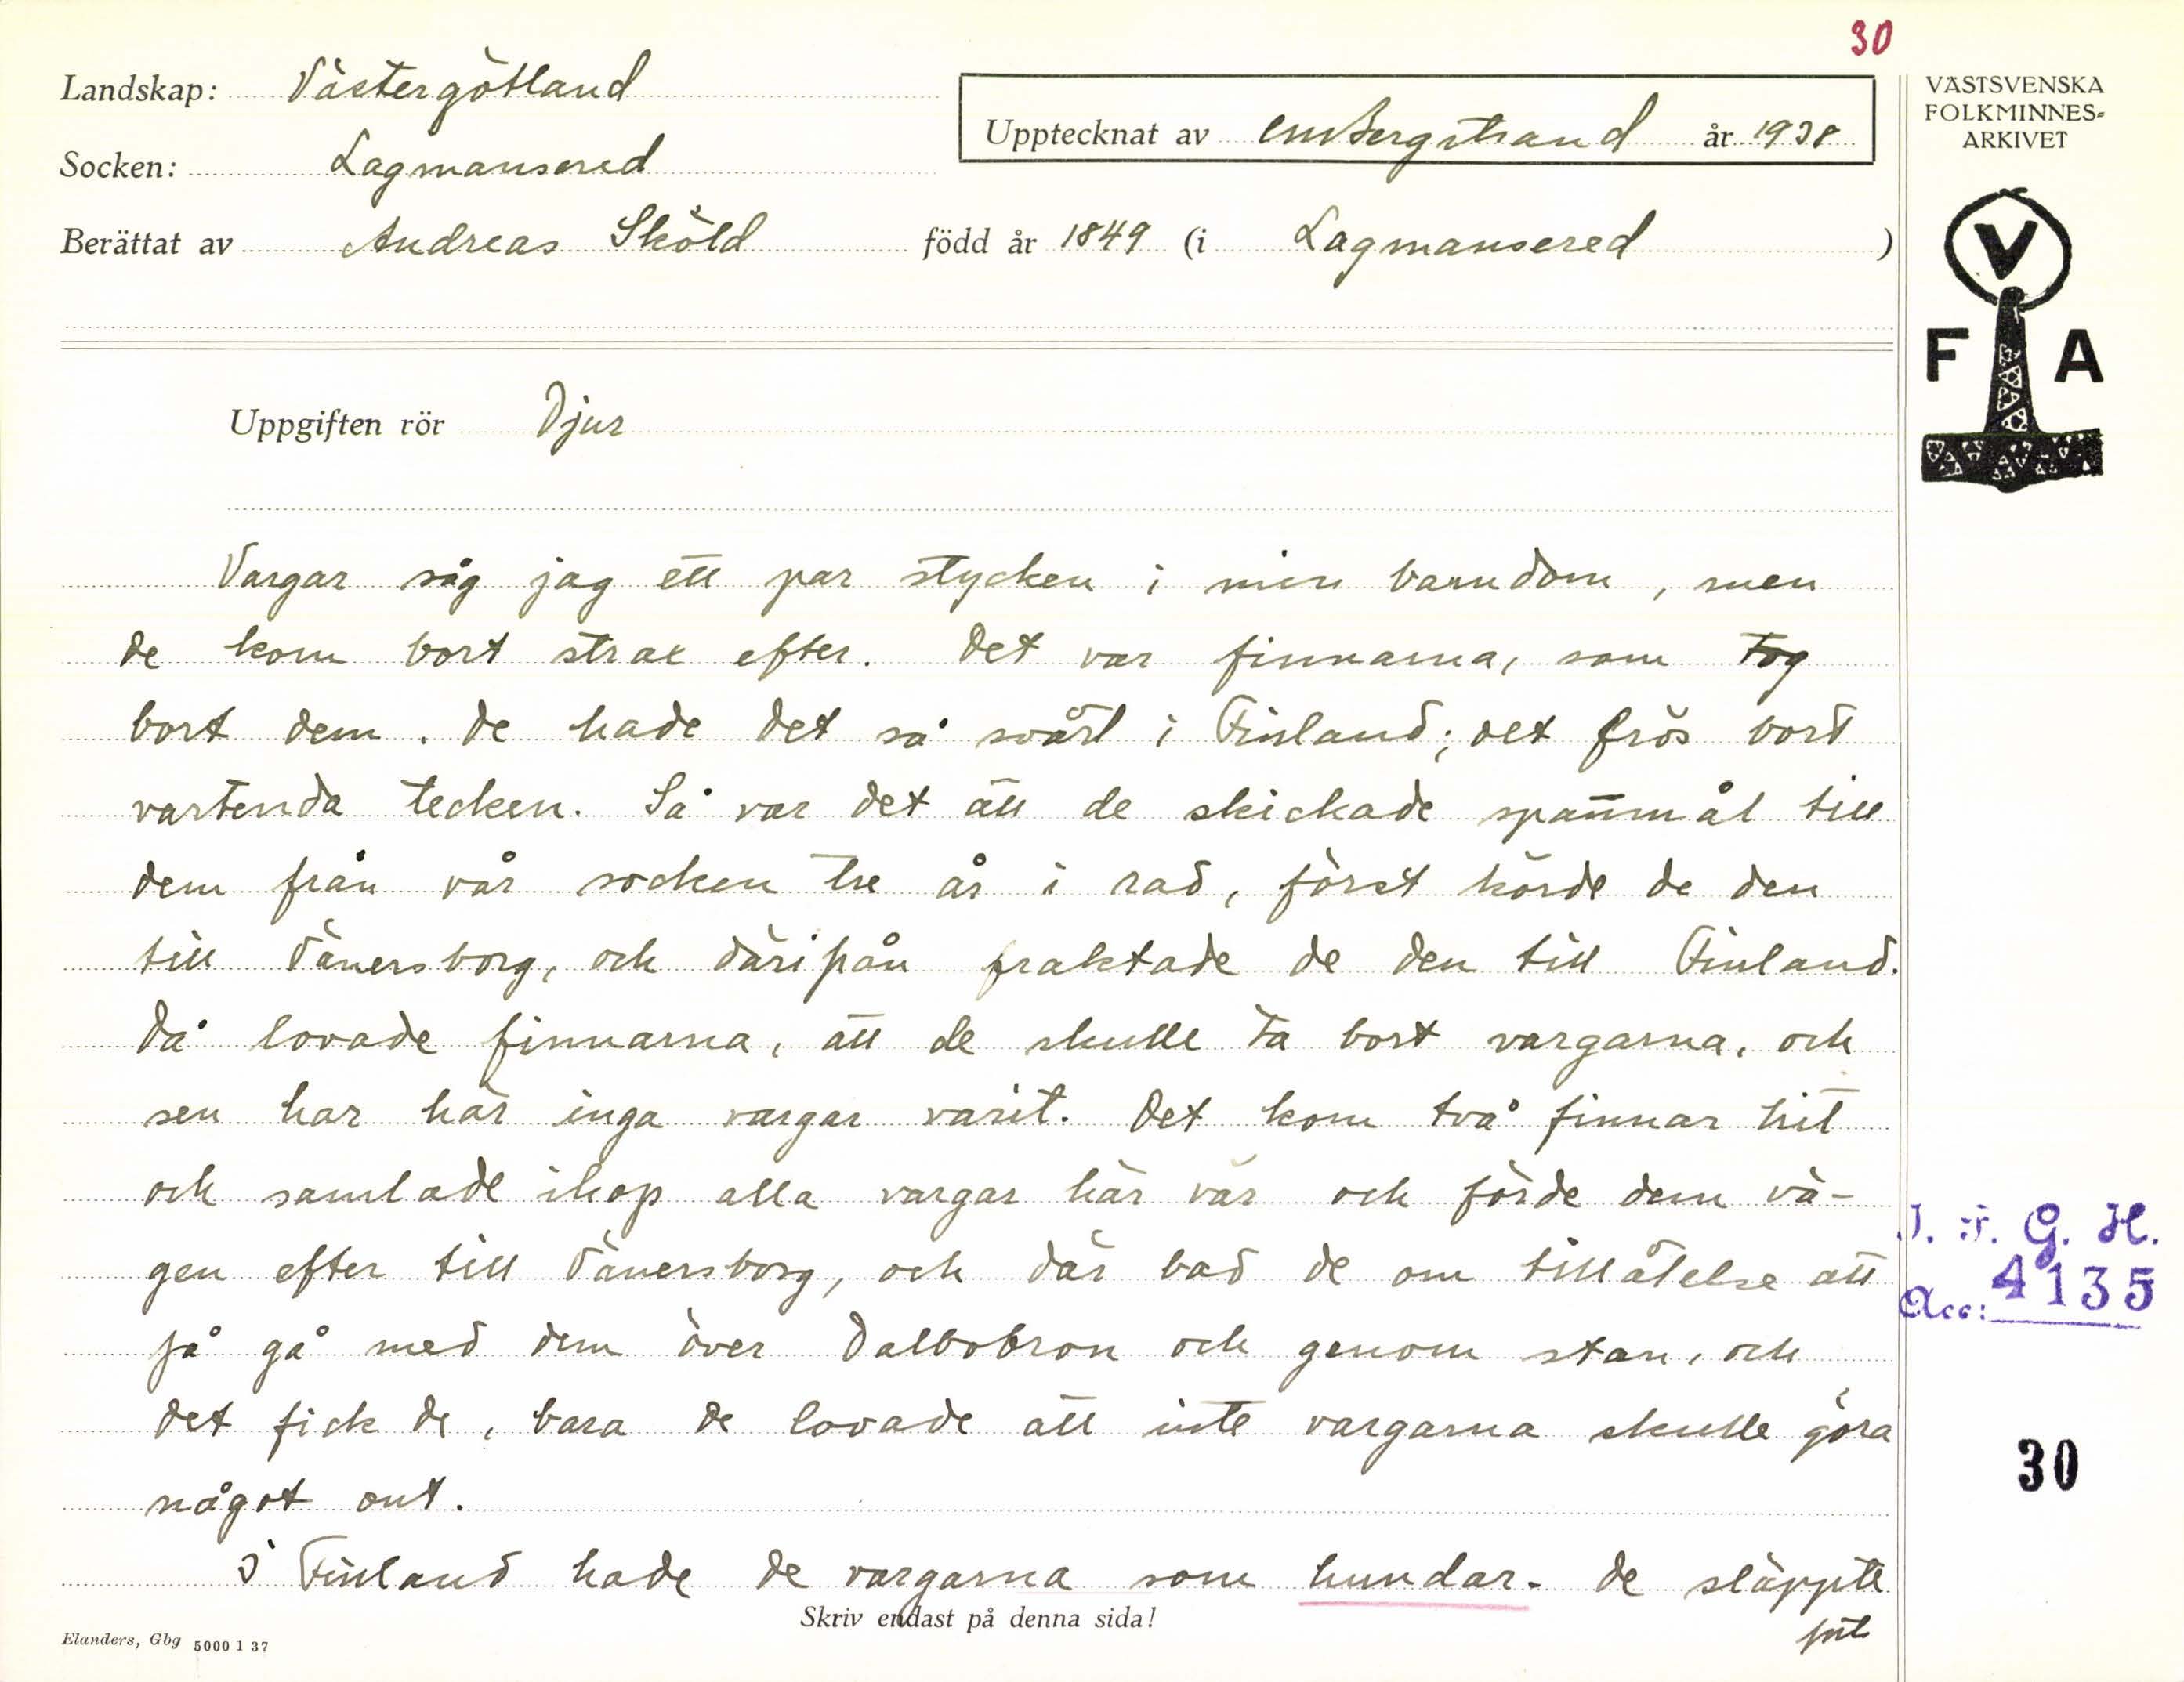 30
Landskap: Västergötland
Upptecknat av CMBergstrand år 1938
VÄSTSVENSKA
FOLKMINNES-
ARKIVET
Socken: Lagmansered
Berättat av Andreas Sköld född år 1849 (i Lagmansered )
V
F A
Uppgiften rör Djur
Vargar såg jag ett par stycken i min barndom, men
de kom bort strax efter. Det var finnarna, som tog
bort dem. De hade det så svårt i Finland; det frös bort
vartenda tecken. Så var det att de skickade spannmål till
dem från vår socken tre år i rad, först körde de den
till Vänersborg, och därifrån fraktade de den till Finland.
Då lovade finnarna, att de skulle ta bort vargarna, och
sen har här inga vargar varit. Det kom två finnar hit
och samlade ihop alla vargar här var och förde dem vä-
gen efter till Vänersborg, och där bad de om tillåtelse att
få gå med dem över Dalbobron och genom stan, och
det fick de, bara de lovade att inte vargarna skulle göra
något ont.
I Finland hade de vargarna som hundar. De släppte
Skriv endast på denna sida!
Elanders, Gbg 5000 1 37
I. F. G. H.
Acc: 4135
30